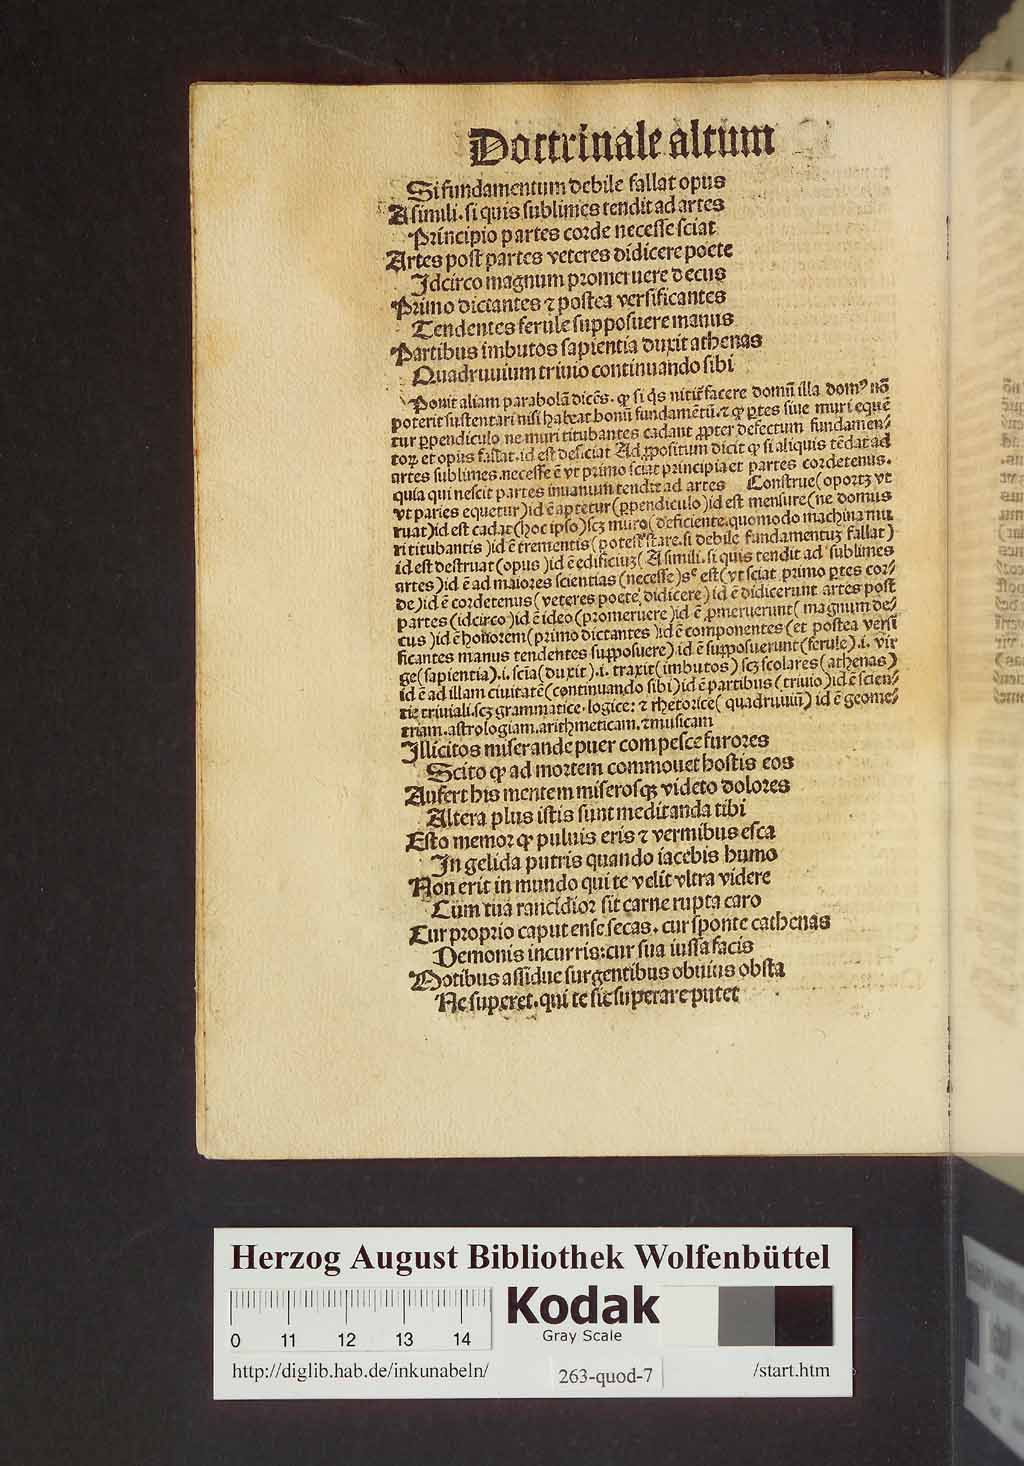 Doctrinale altum
Si fundamentum debile fallat opus
A simili. si quis sublimes tendit ad artes
Principio partes corde necesse sciat
Artes post partes veteres didicere poete
Idcirco magnum promeruere decus
Primo dictantes ⁊ postea versificantes
Tendentes ferule supposuere manus
Partibus imbutos sapientia duxit athenas
Quadruuium triuio continuando sibi
Ponit aliam parabolã dicẽs. ꝙ si q̃s nitit᷑ facere domũ illa domꝰ nõ
poterit sustentari nisi habeat bonũ fundamẽtũ. ⁊ ꝙ ꝑtes siue muri equẽ
tur ꝑpendiculo ne muri titubantes cadant ꝓpter defectum fundamen⸗
toꝝ et opus fallat. id est deficiat Ad ꝓpositum dicit ꝙ si aliquis tẽdat ad
artes sublimes. necesse ẽ vt primo sciat principia et partes cordetenus.
quia qui nescit partes inuanum tendit ad artes Construe (oportꝫ vt
vt paries equetur) id ẽ aptetur (ꝑpendiculo) id est mensure (ne domus
ruat) id est cadat (hoc ipso) scꝫ muro (deficiente. quomodo machina mu
ri titubantis) id ẽ trementis (potest stare. si debile fundamentuꝫ fallat)
id est destruat (opus) id ẽ edificiuꝫ (A simili. si quis tendit ad sublimes
artes) id ẽ ad maiores scientias (necesse) sᶜ est (vt sciat primo ꝑtes cor⸗
de) id ẽ cordetenus (veteres poete didicere) id ẽ didicerunt artes post
partes (idcirco) id ẽ ideo (promeruere) id ẽ ꝓmeruerunt (magnum de⸗
cus) id ẽ honorem (primo dictantes) id ẽ componentes (et postea versi
ficantes manus tendentes supposuere) id ẽ supposuerunt (ferule) .i. vir
ge (sapientia) .i. scia (duxit) .i. traxit (imbutos) scꝫ scolares (athenas)
id ẽ ad illam ciuitatẽ (continuando sibi) id ẽ partibus (triuio) id ẽ scien⸗
tie triuiali. scꝫ grammatice. logice: ⁊ rhetorice (quadruuiũ) id ẽ geome⸗
triam. astrologiam. arithmeticam. ⁊ musicam
Illicitos miserande puer compesce furores
Scito ꝙ ad mortem commouet hostis eos
Aufert his mentem miserosqꝫ videto dolores
Altera plus istis sunt meditanda tibi
Esto memor ꝙ puluis eris ⁊ vermibus esca
In gelida putris quando iacebis humo
Non erit in mundo qui te velit vltra videre
Cũm tua rancidior sit carne rupta caro
Cur proprio caput ense secas. cur sponte cathenas
Demonis incurris: cur sua iussa facis
Motibus assidue surgentibus obuius obsta
Ne superet. qui te sic superare putet
Herzog August Bibliothek Wolfenbüttel
0 11 12 13 14
Kodak
Gray Scale
http://diglib.hab.de/inkunabeln/ 263-quod-7 /start.htm